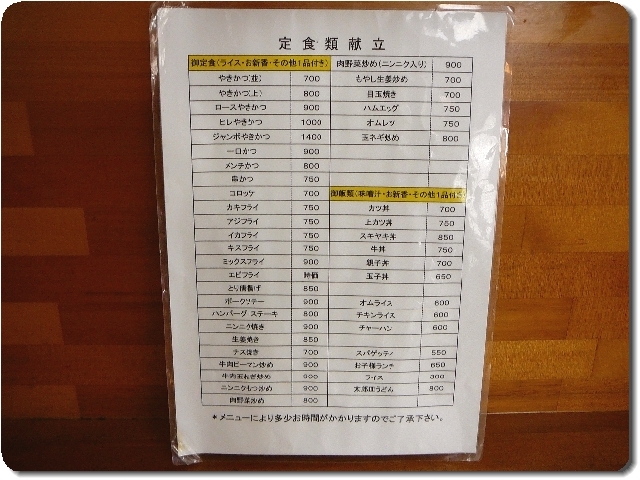 定食類献立
御定食(ライス・お新香・その他1品付き)
やきかつ(並) 700
やきかつ(上) 800
ロースやきかつ 900
ヒレやきかつ 1000
ジャンボやきかつ 1400
一口かつ 900
メンチかつ 800
串かつ 750
コロッケ 700
カキフライ 750
アジフライ 750
イカフライ 750
キスフライ 750
ミックスフライ 900
エビフライ 時価
とり唐揚げ 850
ポークソテー 900
ハンバーグ ステーキ 800
ニンニク焼き 900
生姜焼き 850
ナス焼き 700
牛肉ピーマン炒め 900
牛肉玉ねぎ炒め 900
ニンニクもつ炒め 900
肉野菜炒め 800
肉野菜炒め(ニンニク入り) 900
もやし生姜炒め 700
目玉焼き 700
ハムエッグ 750
オムレツ 750
玉ネギ炒め 800
御飯類(味噌汁・お新香・その他1品付き)
カツ丼 700
上カツ丼 750
スキヤキ丼 850
牛丼 750
親子丼 700
玉子丼 650
オムライス 600
チキンライス 600
チャーハン 600
スパゲッティ 550
お子様ランチ 650
ライス 300
うどん 800
*メニューにより多少お時間がかかりますのでご了承下さい。